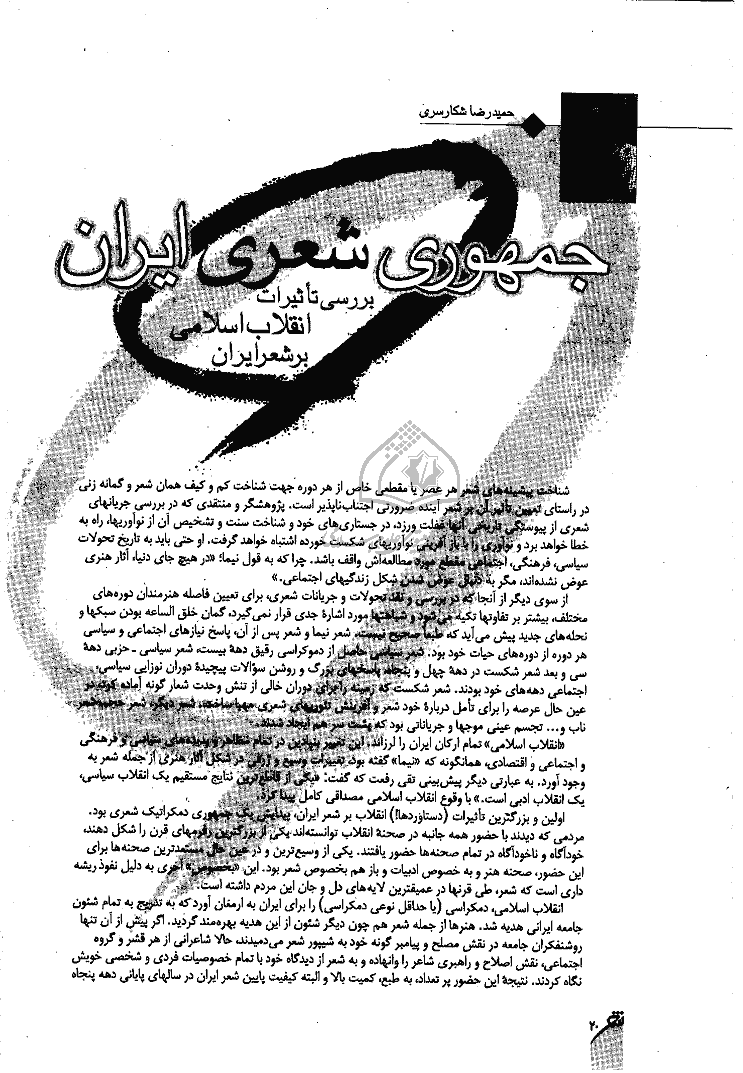 حمیدرضا شکارسری
جمهوری شعری ایران
بررسی تأثیرات
انقلاب اسلامی
بر شعر ایران
شناخت پیشینه‌های شعر هر عصر یا مقطعی خاص از هر دوره جهت شناخت کم و کیف همان شعر و گمانه زنی
در راستای تعیین تأثیر آن بر شعر آینده ضرورتی اجتناب‌ناپذیر است. پژوهشگر و منتقدی که در بررسی جریانهای
شعری از پیوستگی تاریخی آنها غفلت ورزد، در جستاری‌های خود و شناخت سنت و تشخیص آن از نوآوریها، راه به
خطا خواهد برد و نوآوری را با باز آفرینی نوآوریهای شکست خورده اشتباه خواهد گرفت. او حتی باید به تاریخ تحولات
سیاسی، فرهنگی، اجتماعی مقطع مورد مطالعه‌اش واقف باشد. چرا که به قول نیما؛ «در هیچ جای دنیا، آثار هنری
عوض نشده‌اند، مگر به دنبال عوض شدن شکل زندگیهای اجتماعی.»
از سوی دیگر از آنجا که در بررسی و نقد تحولات و جریانات شعری، برای تعیین فاصله هنرمندان دوره‌های
مختلف، بیشتر بر تفاوتها تکیه می‌شود و شباهتها مورد اشارهٔ جدی قرار نمی‌گیرد، گمان خلق الساعه بودن سبکها و
نحله‌های جدید پیش می‌آید که طبعاً صحیح نیست. شعر نیما و شعر پس از آن، پاسخ نیازهای اجتماعی و سیاسی
هر دوره از دوره‌های حیات خود بود. شعر سیاسی حاصل از دموکراسی رقیق دههٔ بیست، شعر سیاسی ـ حزبی دههٔ
سی و بعد شعر شکست در دههٔ چهل و پنجاه، پاسخهای بزرگ و روشن سؤالات پیچیدهٔ دوران نوزایی سیاسی،
اجتماعی دهه‌های خود بودند. شعر شکست که زمینه را برای دوران خالی از تنش وحدت شعار گونه آماده کرد، در
عین حال عرصه را برای تأمل دربارهٔ خود شعر و آفرینش تئوریهای شعری مهیا ساخت. شعر دیگر، شعر حجم، شعر
ناب و... تجسم عینی موجها و جریاناتی بود که پشت سر هم ایجاد شدند.
«انقلاب اسلامی» تمام ارکان ایران را لرزاند. این تغییر بنیادین در تمام مظاهر و پدیده‌های سیاسی و فرهنگی
و اجتماعی و اقتصادی، همانگونه که «نیما» گفته بود، تغییرات وسیع و ژرفی در شکل آثار هنری از جمله شعر به
وجود آورد. به عبارتی دیگر پیش‌بینی تقی رفعت که گفت: «یکی از قاطع‌ترین نتایج مستقیم یک انقلاب سیاسی،
یک انقلاب ادبی است.» با وقوع انقلاب اسلامی مصداقی کامل پیدا کرد.
اولین و بزرگترین تأثیرات (دستاوردها!) انقلاب بر شعر ایران، پیدایش یک جمهوری دمکراتیک شعری بود.
مردمی که دیدند با حضور همه جانبه در صحنهٔ انقلاب توانسته‌اند یکی از بزرگترین رفرمهای قرن را شکل دهند،
خودآگاه و ناخودآگاه در تمام صحنه‌ها حضور یافتند. یکی از وسیع‌ترین و در عین حال مستعدترین صحنه‌ها برای
این حضور، صحنه هنر و به خصوص ادبیات و باز هم بخصوص شعر بود. این «بخصوص» آخری به دلیل نفوذ ریشه
داری است که شعر، طی قرنها در عمیقترین لایه‌های دل و جان این مردم داشته است.
انقلاب اسلامی، دمکراسی (یا حداقل نوعی دمکراسی) را برای ایران به ارمغان آورد که به تدریج به تمام شئون
جامعه ایرانی هدیه شد. هنرها از جمله شعر هم چون دیگر شئون از این هدیه بهره‌مند گردید. اگر پیش از آن تنها
روشنفکران جامعه در نقش مصلح و پیامبر گونه خود به شیپور شعر می‌دمیدند، حالا شاعرانی از هر قشر و گروه
اجتماعی، نقش اصلاح و راهبری شاعر را وانهاده و به شعر از دیدگاه خود با تمام خصوصیات فردی و شخصی خویش
نگاه کردند. نتیجهٔ این حضور پر تعداد، به طبع، کمیت بالا و البته کیفیت پایین شعر ایران در سالهای پایانی دهه پنجاه
شعر
۲۰